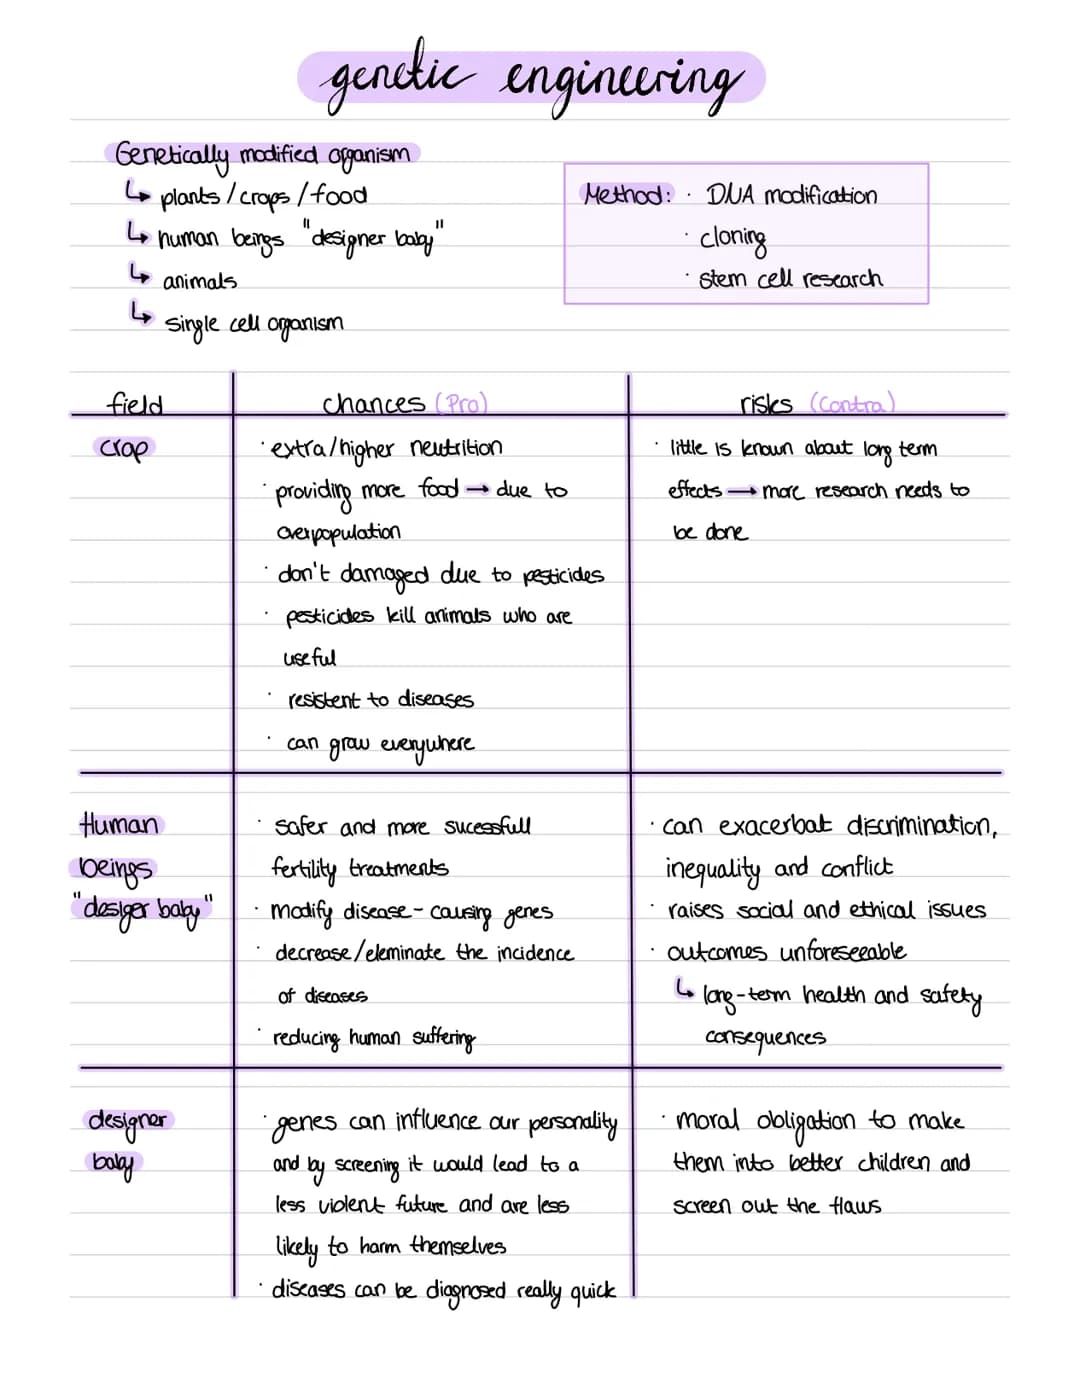 genetic engineering
Genetically modified organism
↳ plants / crops / food
↳ human beings "designer baby"
↳ animals
↳ single cell organism
Method: · DNA modification
· cloning
· stem cell research
field chances (Pro) risks (Contra)
crop
· extra/higher neutrition
· providing more food → due to
overpopulation
· don't damaged due to pesticides
· pesticides kill animals who are
useful
· resistent to diseases
· can grow everywhere
· little is known about long term
effects → more research needs to
be done
Human
beings
"desiger baby"
· safer and more sucessfull
fertility treatments
· modify disease-causing genes
· decrease/eleminate the incidence
of diseases
· reducing human suffering
· can exacerbat discrimination,
inequality and conflict
· raises social and ethical issues
· outcomes unforeseeable
↳ long-term health and safety
consequences
designer
baby
· genes can influence our personality
and by screening it would lead to a
less violent future and are less
likely to harm themselves
· diseases can be diagnosed really quick
· moral obligation to make
them into better children and
screen out the flaws